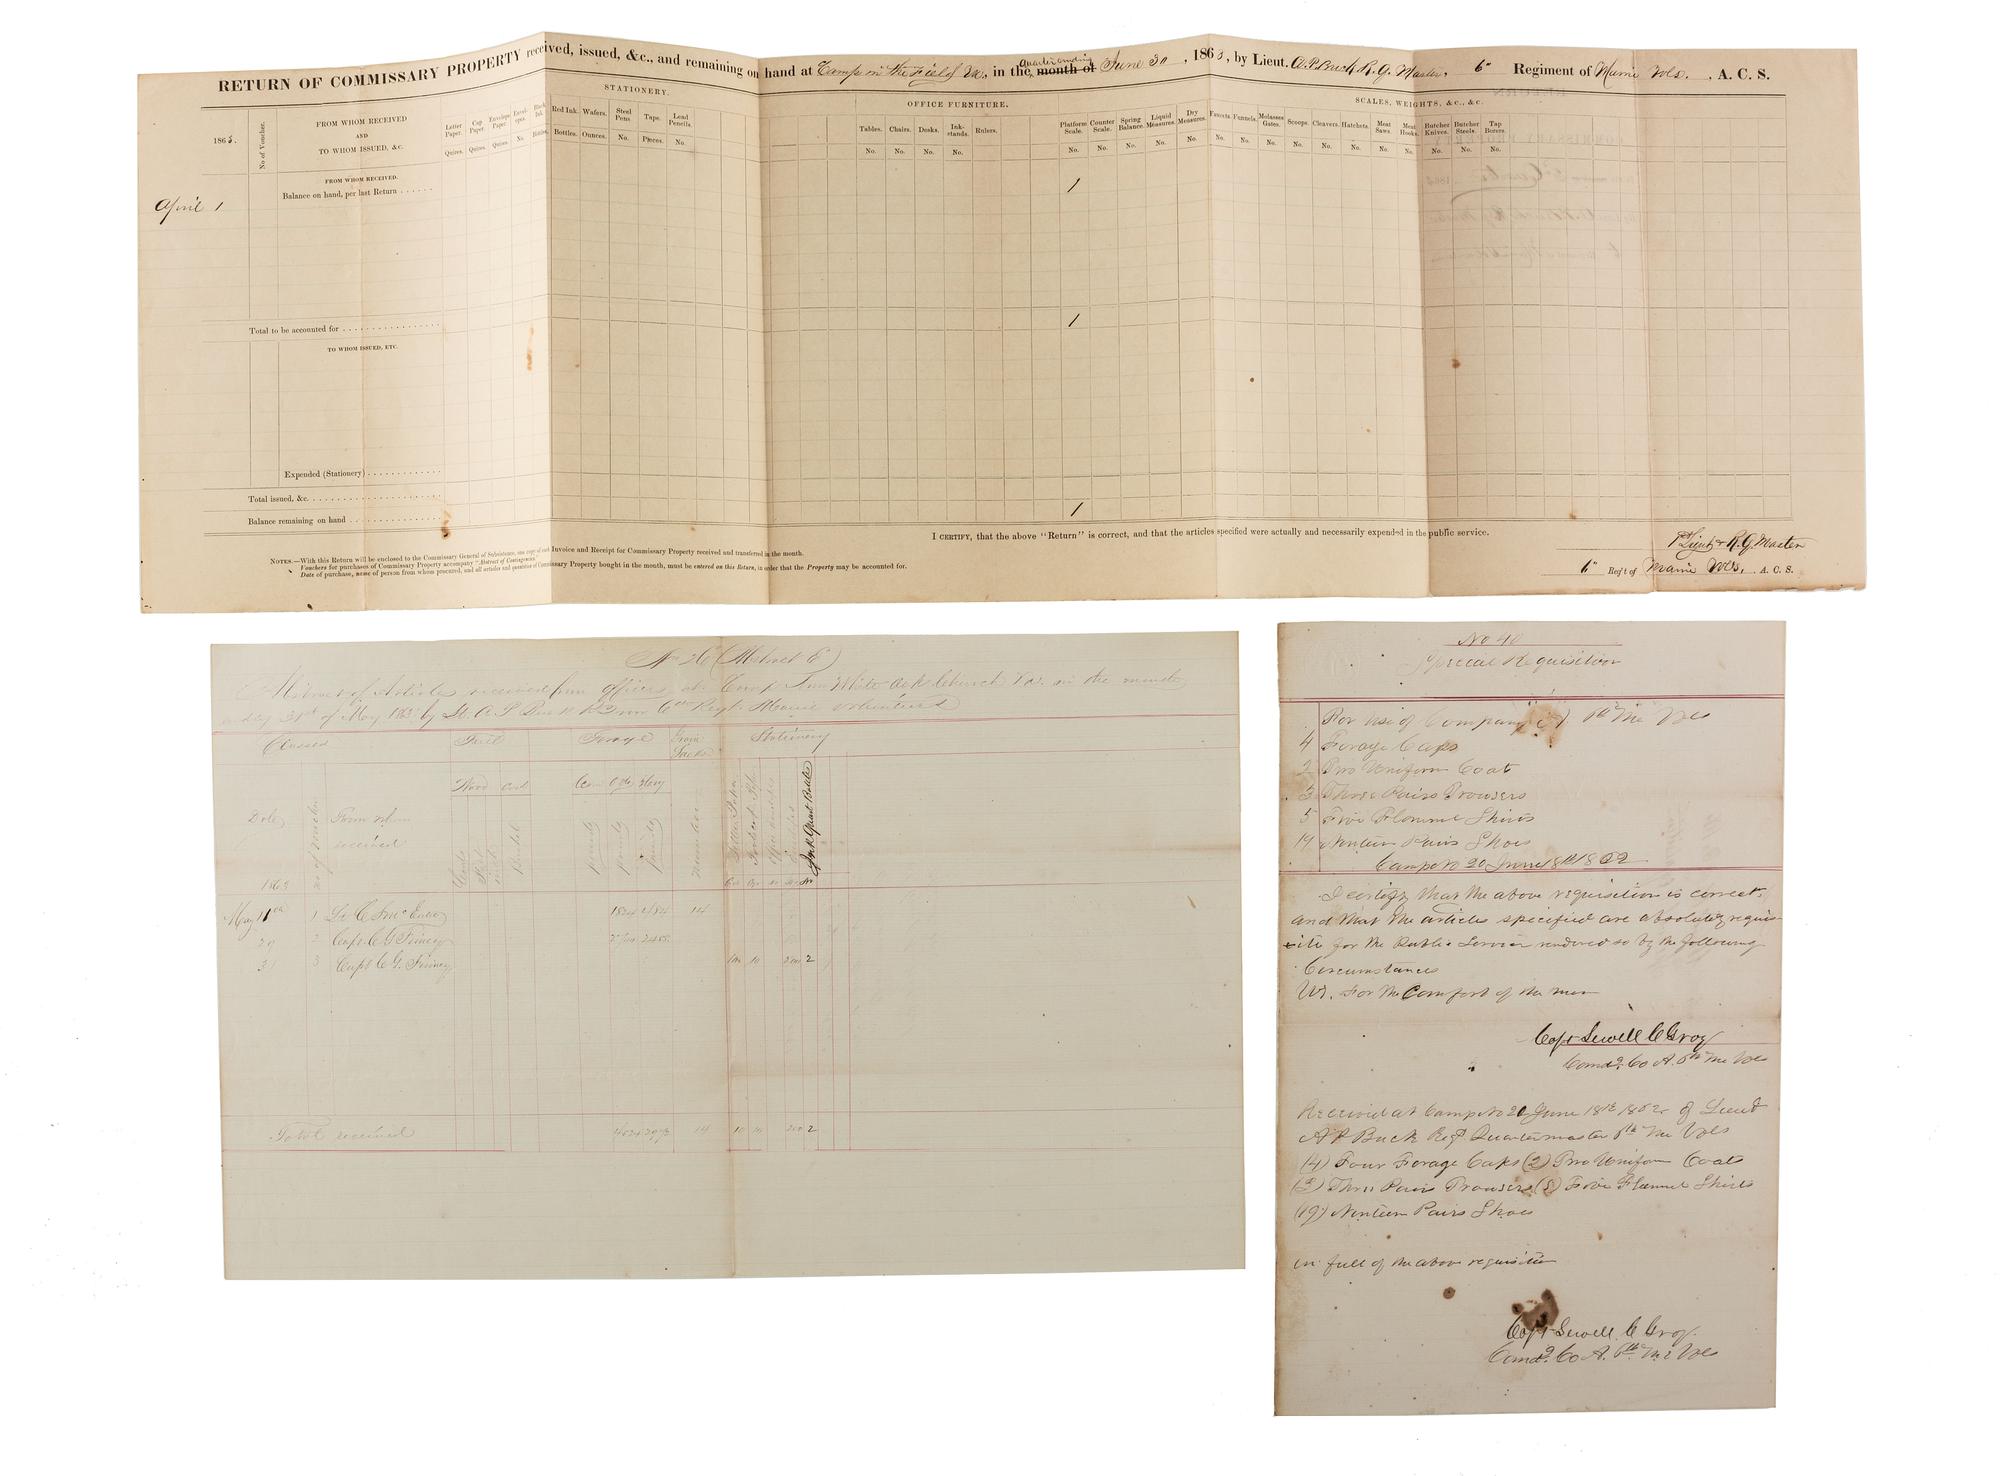 RETURN OF COMMISSARY PROPERTY received, issued, &c., and remaining on hand at Camp in the Field Va., in the quarter ending month of June 30, 1863, by Lieut. A. P. Buck R. Q. Master, 6" Regiment of Maine Vols. , A. C. S.
STATIONERY.
OFFICE FURNITURE.
SCALES, WEIGHTS, &c., &c.
1863.
No of Voucher.
FROM WHOM RECEIVED
AND
TO WHOM ISSUED, &C.
Letter Paper. Cap Paper. Envelope Paper. Envelopes. Black Ink. Red Ink. Wafers. Steel Pens Tape. Lead Pencils.
Quires. Quires. Quires. No. Bottles. Bottles. Ounces. No. Pieces. No.
Tables. Chairs. Desks. Ink-stands. Rulers. Platform Scale. Counter Scale. Spring Balance. Liquid Measures. Dry Measures. Faucets. Funnels. Molasses Gates. Scoops. Cleavers. Hatchets. Meat Saws. Meat Hooks. Butcher Knives. Butcher Steels. Tap Borers.
No. No. No. No. No. No. No. No. No. No. No. No. No. No. No. No. No. No. No. No.
FROM WHOM RECEIVED.
April 1
Balance on hand, per last Return . . . . . . 1
Total to be accounted for . . . . . . . . . . . . . . . . . 1
TO WHOM ISSUED, ETC.
Expended (Stationery) . . . . . . . . . . . . .
Total issued, &c. . . . . . . . . . . . . . . . . . . . . . .
Balance remaining on hand . . . . . . . . . . . . . . . . 1
I CERTIFY, that the above "Return" is correct, and that the articles specified were actually and necessarily expended in the public service.
NOTES.—With this Return will be enclosed to the Commissary General of Subsistence, one copy of each Invoice and Receipt for Commissary Property received and transferred in the month.
Vouchers for purchases of Commissary Property accompany "Abstract of Contingencies."
Date of purchase, name of person from whom procured, and all articles and quantities of Commissary Property bought in the month, must be entered on this Return, in order that the Property may be accounted for.
1st Lieut & R. Q. Master
6" Reg't of Maine Vols. , A. C. S.
No 26 (Abstract E)
Abstract of Articles received from officers at Camp near White Oak Church Va. in the month
ending 31st of May 1863 by Lt. A P Buck RQM 6th Regt. Maine Volunteers
Classed Fuel Forage Grain Sacks Stationery
Wood Coal Corn Oats Hay
Date No of Voucher From whom received
Cords Pounds Pounds Pounds Number Ink Quart Bottles
1863
May 11th 1 Lt. 14
29 2 Capt. C G Finney
31 3 Capt C G. Finney 10 200 2
Total received 14 10 10 200 2
No 40
Special Requisition
For use of Company A 6th Me Vols
4 Forage Caps
2 Two Uniform Coat
3 Three Pairs Trowsers
5 Five Flannel Shirts
19 Nineteen Pairs Shoes
Camp No 20 June 18th 1862
I certify that the above requisition is correct,
and that the articles specified are absolutely requis-
ite for the Public Service rendered so by the following
Circumstances
Vz. For the Comfort of the men
Capt Sewell C Gray
Comdg. Co A. 6th Me Vols
Received at Camp No 20 June 18th 1862 of Lieut
A P Buck Regt Quartermaster 6th Me Vols
(4) Four Forage Caps (2) Two Uniform Coats
(3) Three Pairs Trowsers (5) Five Flannel Shirts
(19) Nineteen Pairs Shoes
in full of the above requisition
Capt Sewell C Gray.
Comdg. Co A. 6th Me Vols